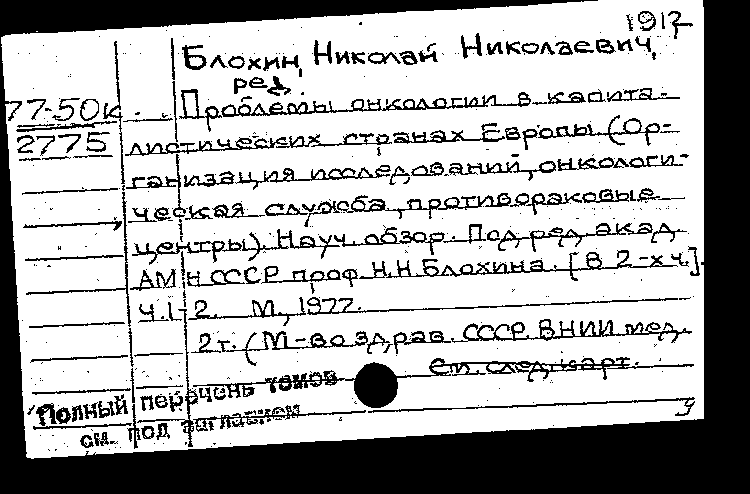 1912
Блохин, Николай Николаевич,
ред.
77-50к Проблемы онкологии в капита-
2775 листических странах Европы (Ор-
ганизация исследований, онкологи-
ческая служба, противораковые
центры). Науч. обзор. Под ред. акад.
АМН СССР проф. Н.Н. Блохина. [В 2-х ч.].
Ч.1-2. М., 1977.
2т. (М-во здрав. СССР. ВНИИ мед.
См. след. карт.
Полный перечень томов
см. под заглавием